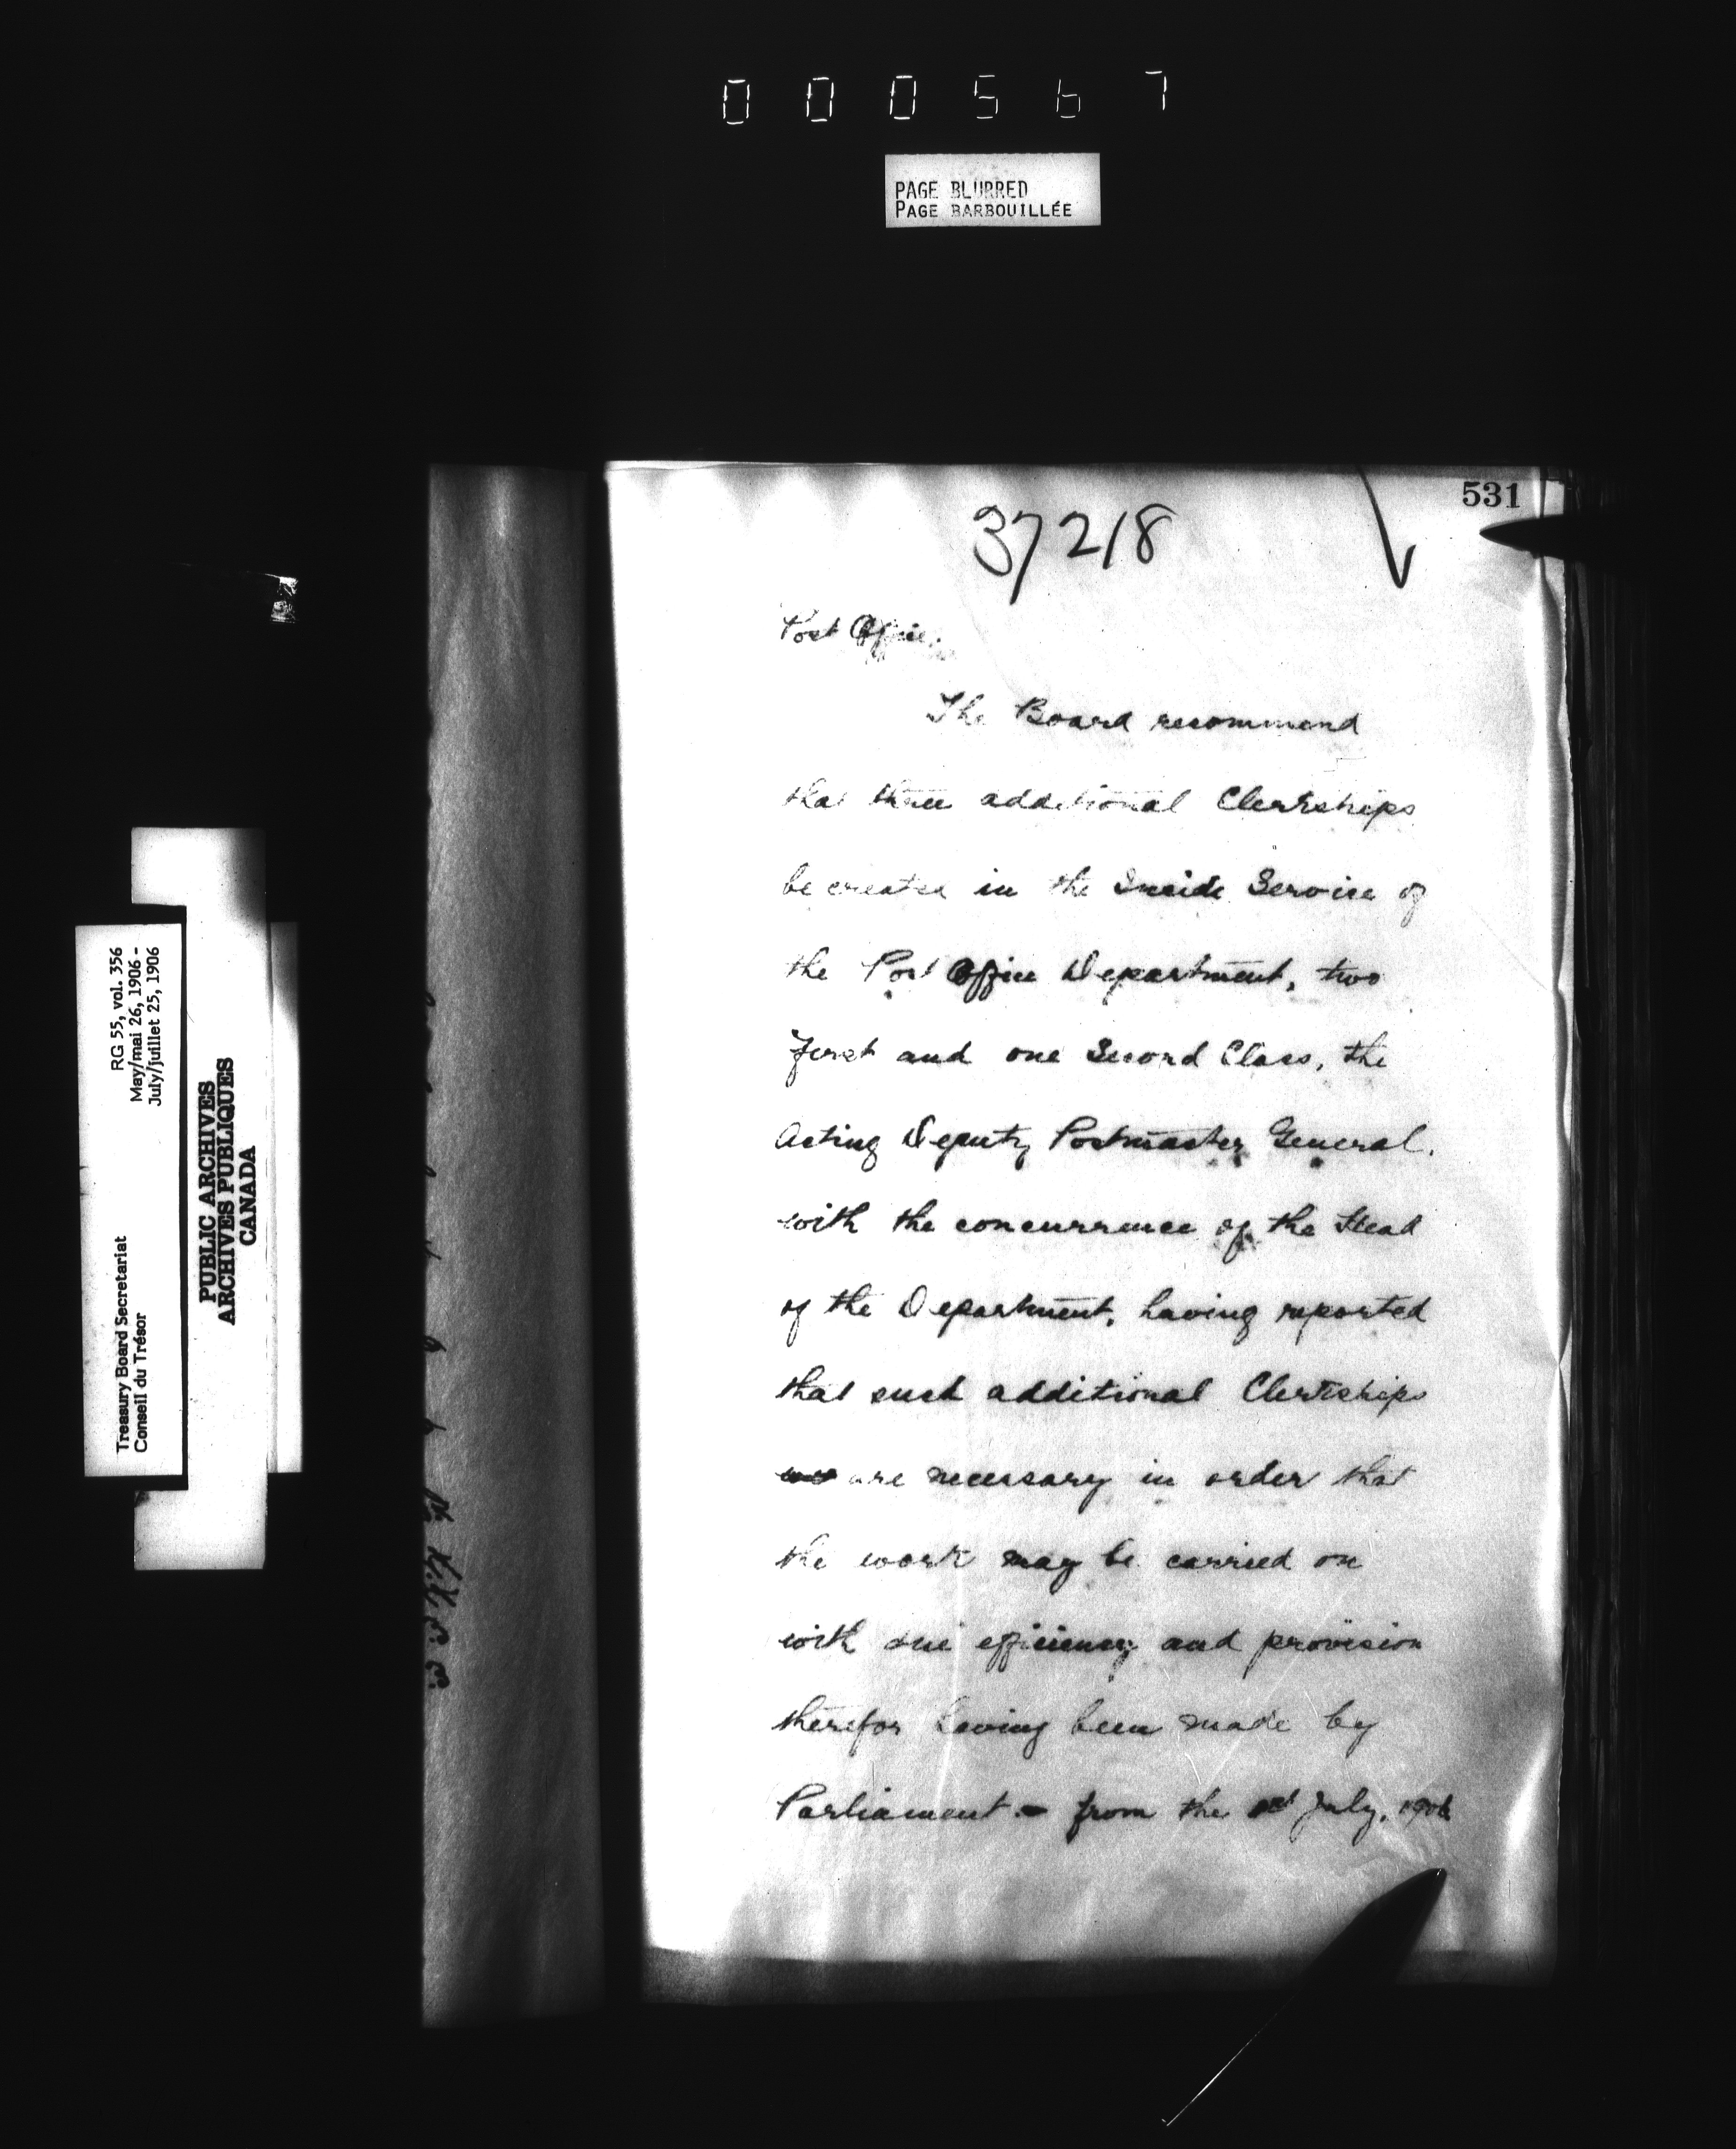 000567
PAGE BLURRED
PAGE BARBOUILLÉE
531
37218
Post Office.
The Board recommend
that three additional Clerkships
be created in the Inside Service of
the Post Office Department, two
First and one Second Class, the
Acting Deputy Postmaster General,
with the concurrence of the Head
of the Department, having reported
that such additional Clerkships
are necessary in order that
the work may be carried on
with due efficiency and provision
therefor having been made by
Parliament - from the 1st July, 1906
RG 55, vol. 356
May/mai 26, 1906 -
July/juillet 25, 1906
Treasury Board Secretariat
Conseil du Trésor
PUBLIC ARCHIVES
ARCHIVES PUBLIQUES
CANADA